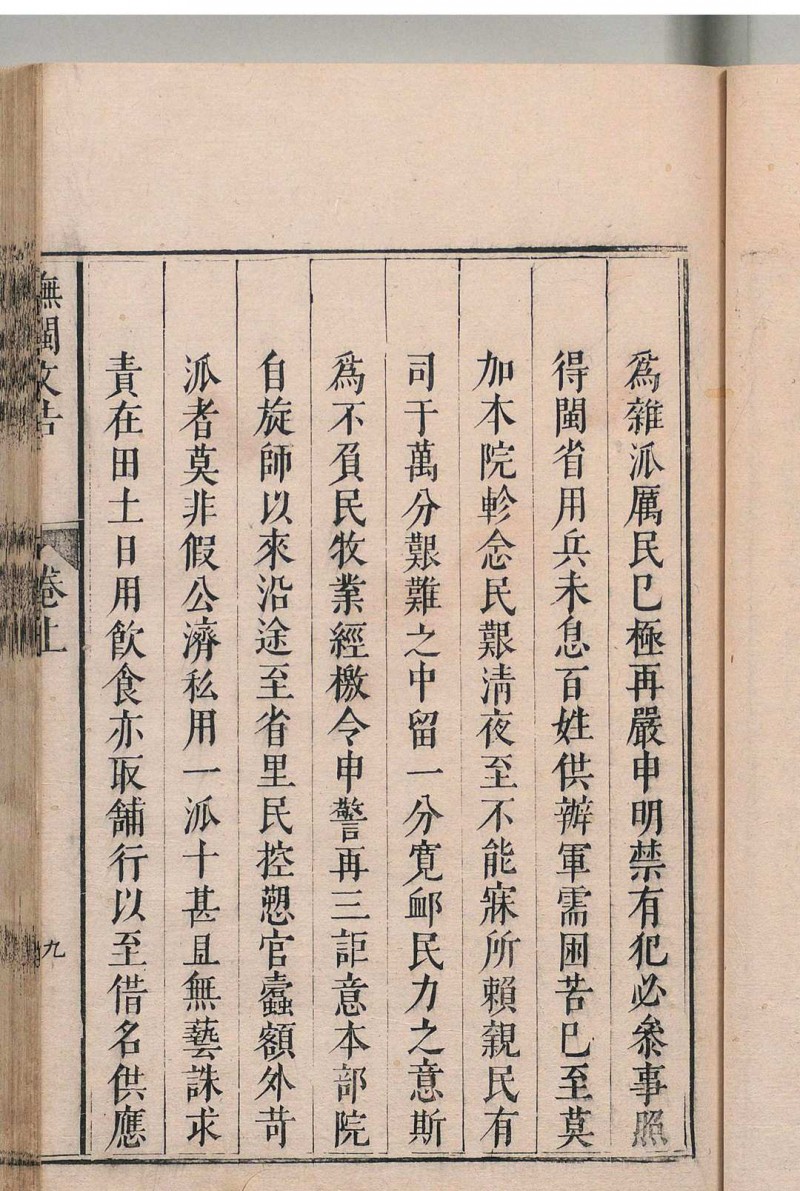 爲雜派厲民已極再嚴申明禁有犯必叅事照
得閩省用兵未息百姓供辦軍需困苦已至莫
加本院軫念民艱清夜至不能寐所賴親民有
司于萬分艱難之中留一分寬衈民力之意斯
爲不負民牧業經檄令申警再三詎意本部院
自旋師以來沿途至省里民控愬官蠹額外苛
派者莫非假公濟私用一派十甚且無藝誅求
責在田土日用飲食亦取舖行以至借名供應
撫閩文告
卷上
九